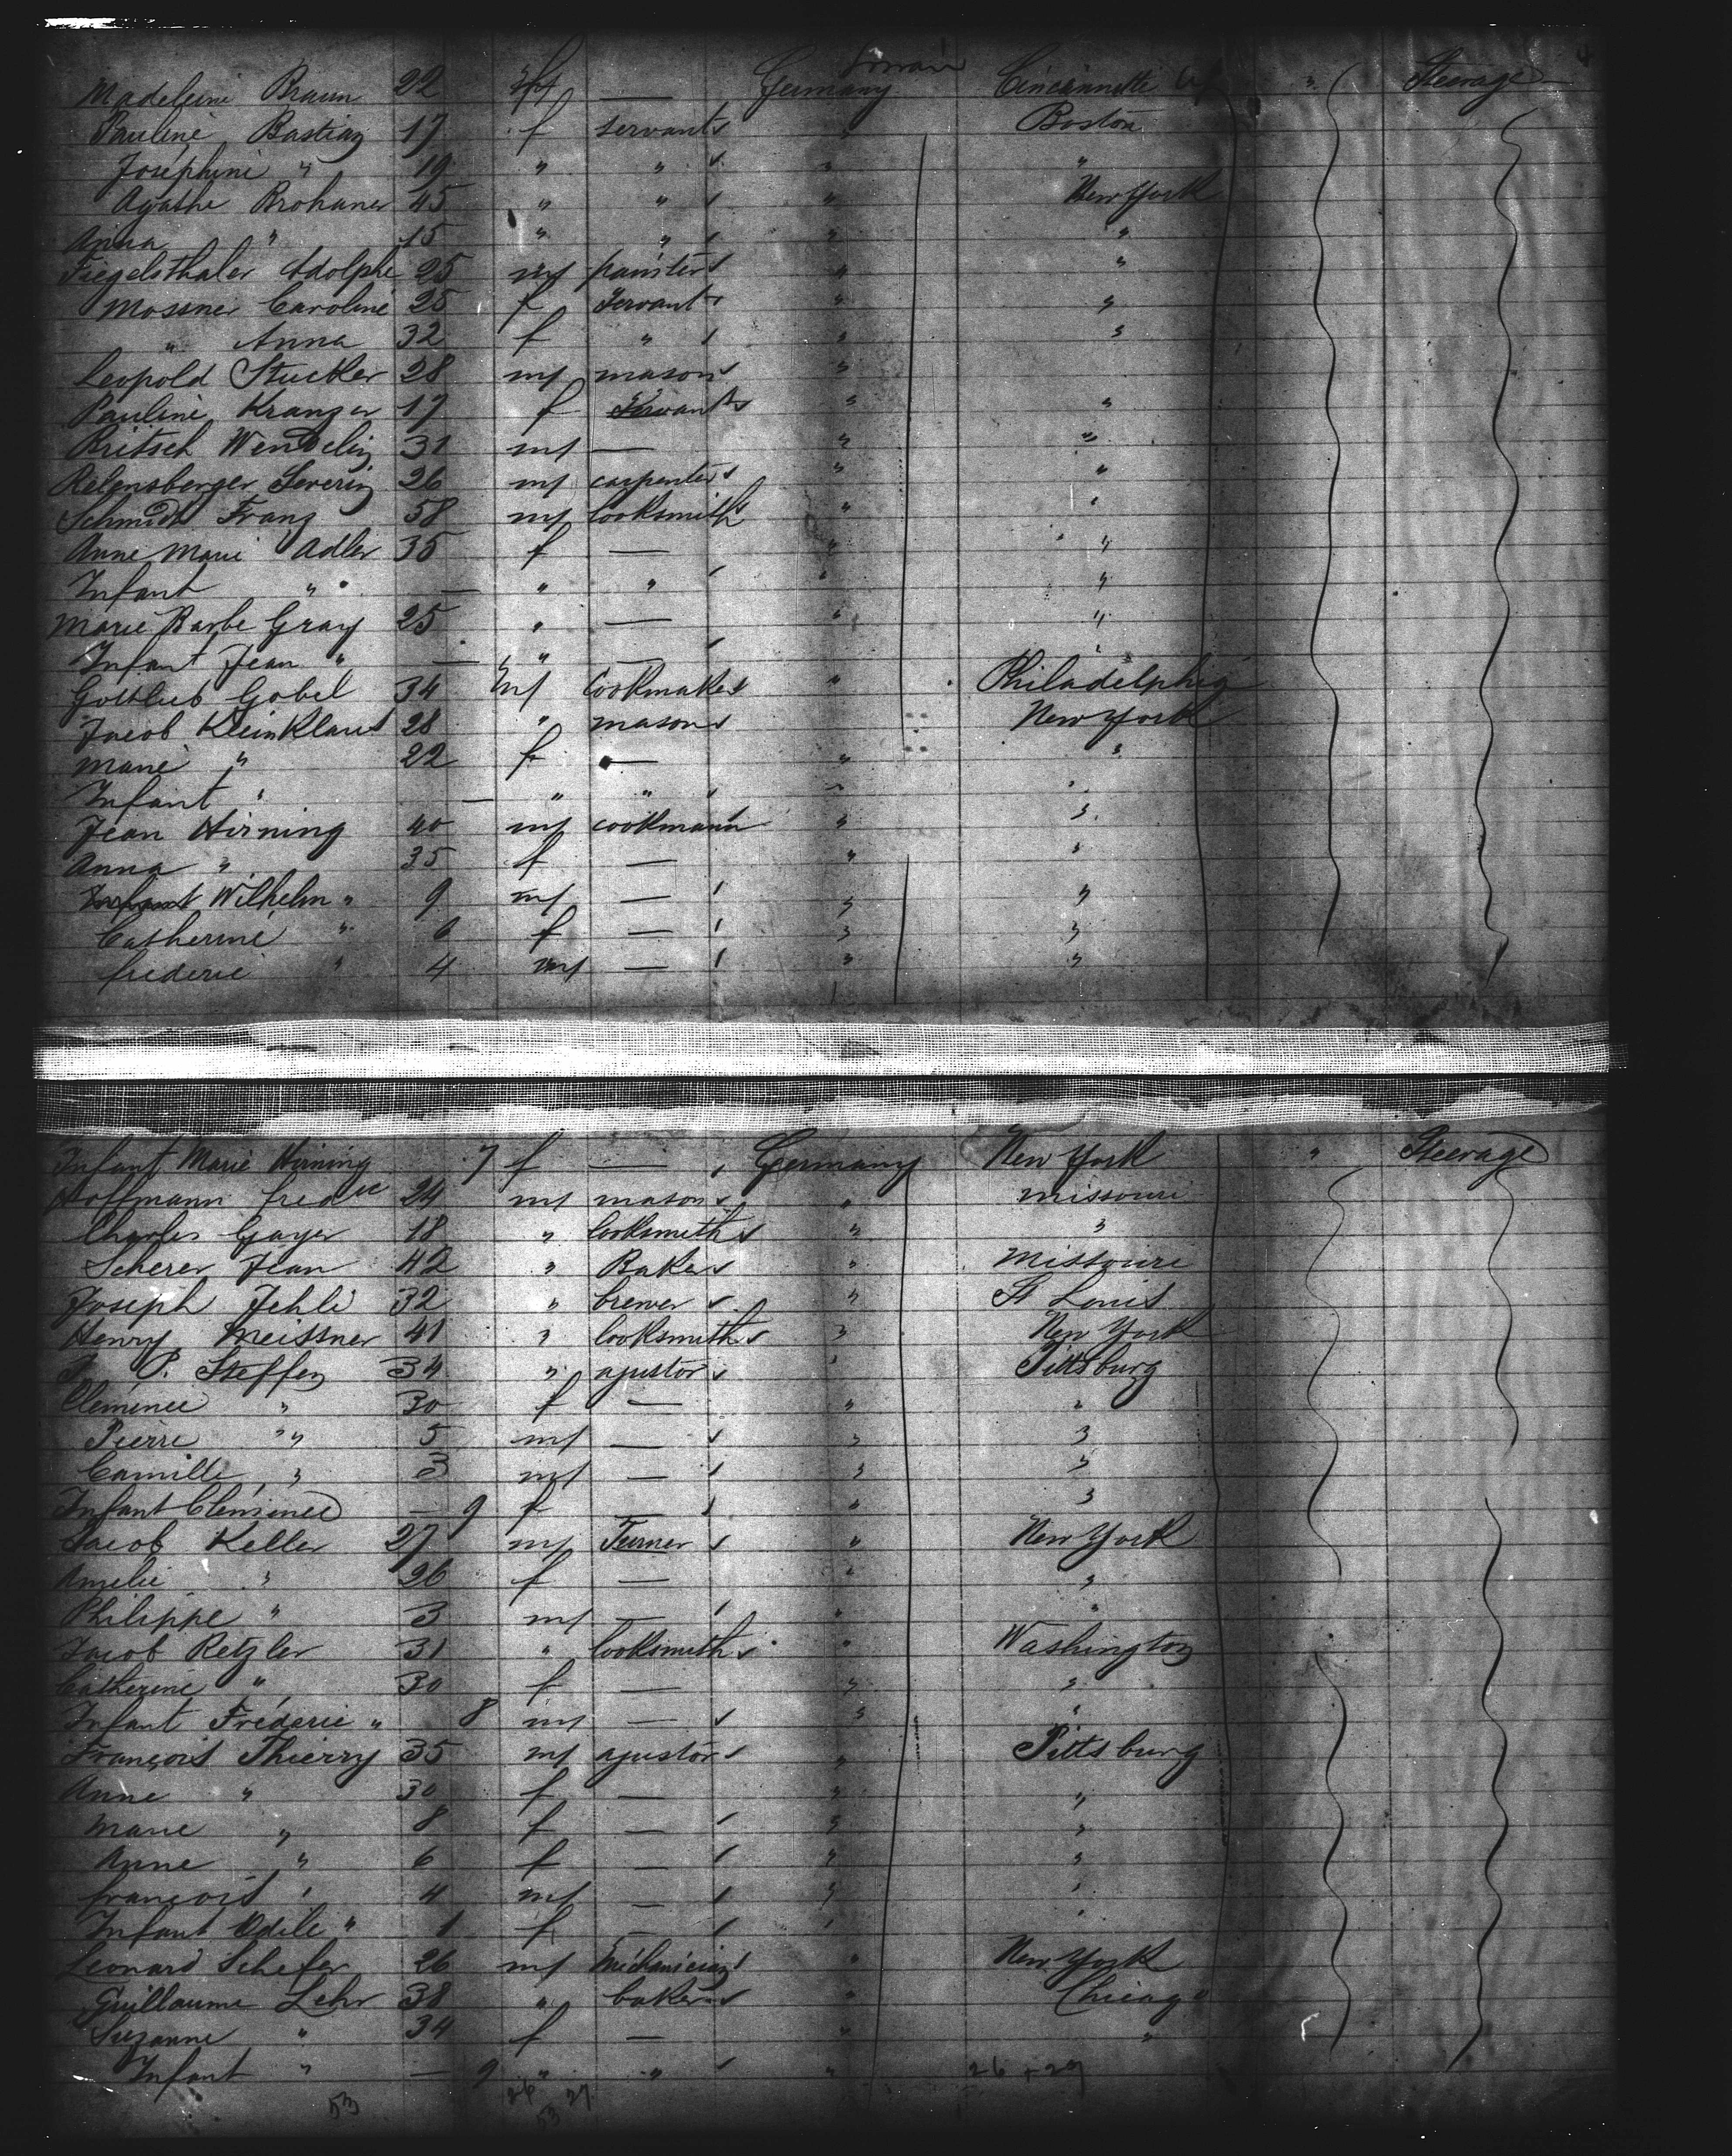 Madeleine Braun 22 f — Germany Cincinnatti Steerage
Pauline Bastian 17 f servant " Boston
Josephine " 19 " " " "
Agathe Brohaner 45 " " " New York
Anna " 15 " " " "
Fiegelsthaler Adolphe 25 m painter " "
Mossner Caroline 25 f servant " "
" Anna 32 f " " "
Leopold Stucker 28 m mason "
Pauline Kranzer 17 f servant " "
Britsch Wendelin 31 m — " "
Relensberger Severin 26 m carpenter " "
Schmidt Franz 58 m locksmith " "
Anne Marie Adler 35 f — " "
Infant " — " " " "
Marie Barbe Gray 25 " — " "
Infant Jean " — " — "
Gottlieb Gobel 34 m cookmaker " Philadelphia
Jacob Kleinklaus 28 " mason New York
Marie " 22 f — " "
Infant " — " " " "
Jean Hirning 40 m cookmann " "
Anna " 35 f — " "
Wilhelm " 9 m — " "
Catherine " 6 f — " "
frederic " 4 m — " "
Infant Marie Hirning 7 f — Germany New York " Steerage
Hoffmann fredric 24 m mason " missouri
Charles Gayer 18 " locksmith " "
Scherer Jean 42 " Baker " Missouri
Joseph Jehli 32 " brewer " St Louis
Henry Meissner 41 " locksmith " New York
P. Steffen 34 " ajustor " Pittsburg
Clemence " 30 f — " "
Pierre " 5 m — " "
Camille " 3 m — " "
Infant Clemence — 9 f — " "
Jacob Keller 27 m Turner " New York
Amelie " 26 f — " "
Philippe " 3 m — " "
Jacob Retzler 31 " locksmith " Washington
Catherine " 30 f — " "
Infant Fréderic " 8 m — " "
François Thierry 35 m ajustor " Pittsburg
Anne " 30 f — " "
Marie " 8 f — " "
Anne " 6 f — " "
françois " 4 m — " "
Infant Odile " 1 f — " "
Leonard Schefer 26 m Méchanician " New York
Guillaume Lehr 38 " baker " Chicago
Suzanne " 34 f — " "
Infant " — 9 " " " 26 + 27
53 26 27
53